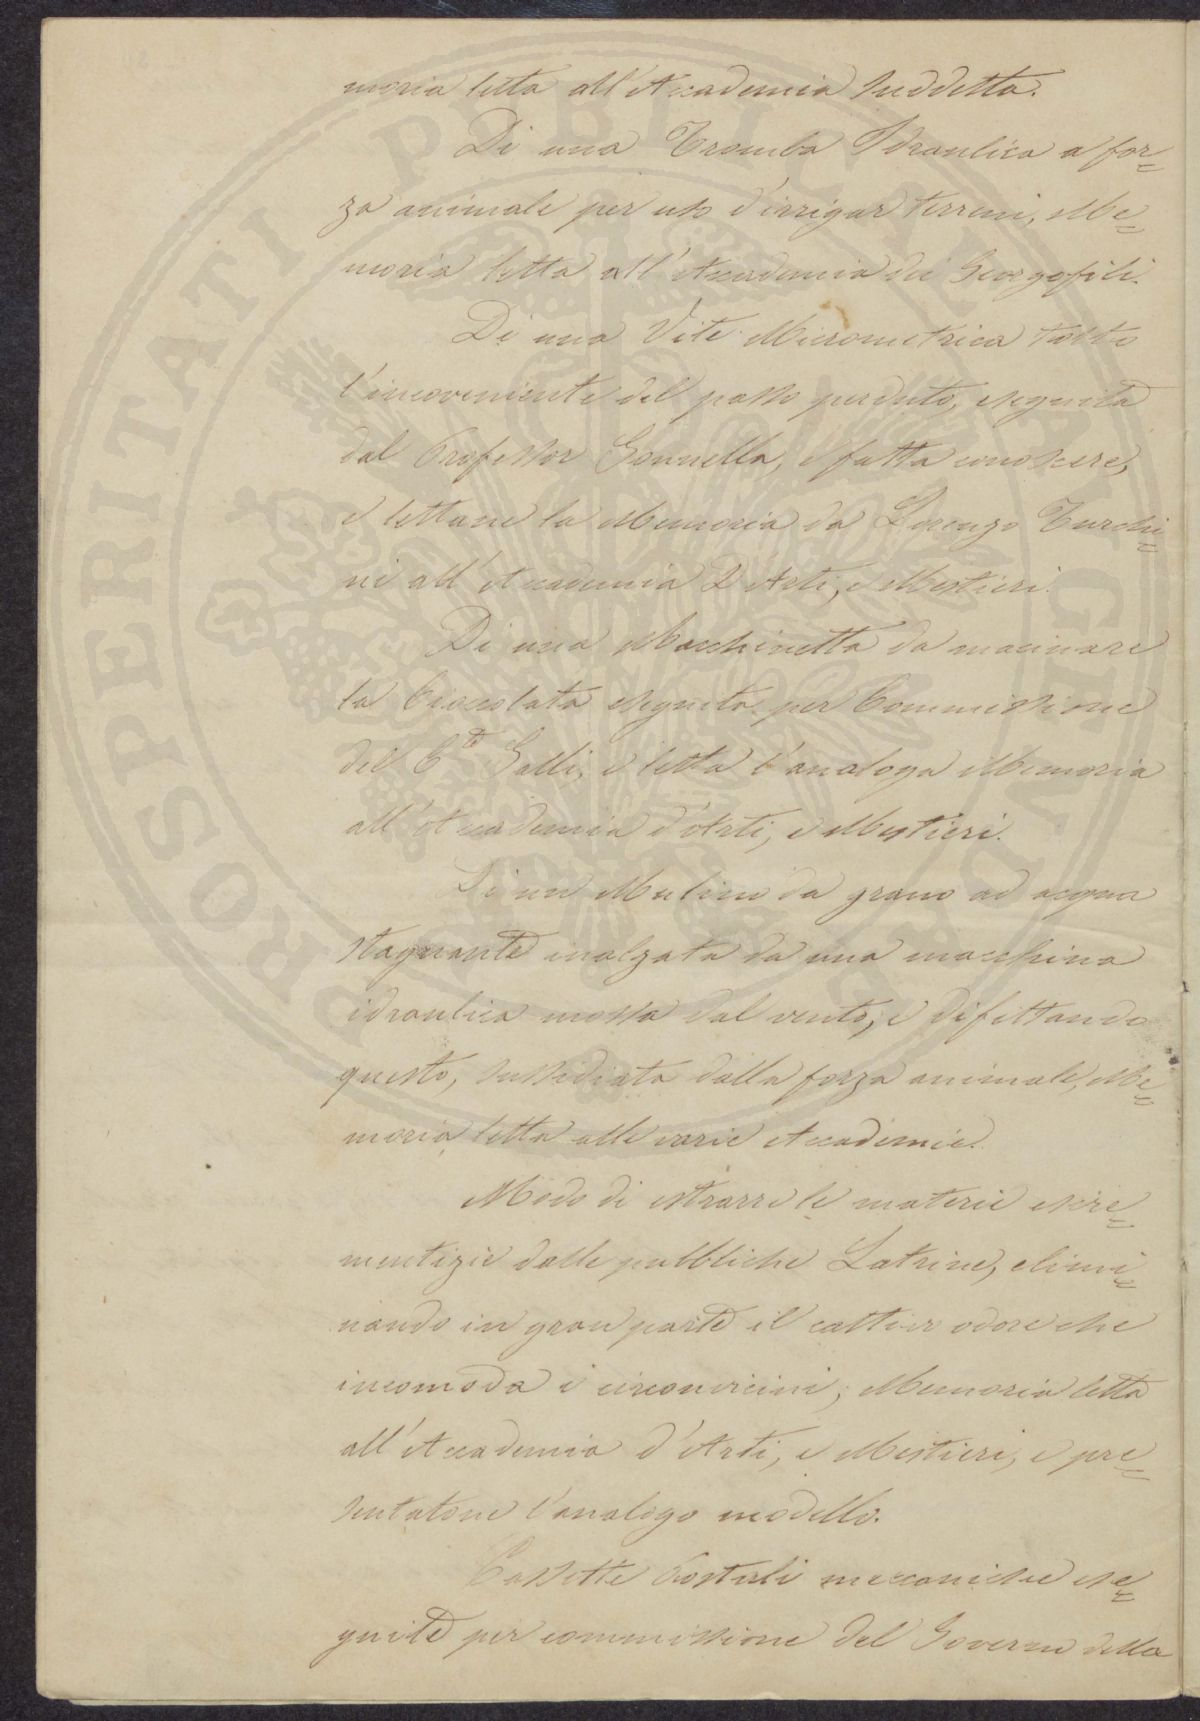 moria letta all'Accademia suddetta.
Di una Tromba Idraulica a for=
za animale per uso d'irrigar terreni, Me=
moria letta all'Accademia dei Georgofili.
Di una Vite Micrometrica tolto
l'incoveniente del passo perduto, eseguita
dal Professor Gonnella, e fatta conoscere,
e lettane la Memoria da Lorenzo Turchi=
ni all'Accademia D'Arti, e Mestieri.
Di una Macchinetta da macinare
la Cioccolata eseguita per Commissione
del C.te Galli, e letta l'analoga Memoria
all'Accademia d'Arti, e Mestieri.
Di un Mulino da grano ad acqua
stagnante inalzata da una macchina
idraulica mossa dal vento, e difettando
questo, sussidiata dalla forza animale, Me=
moria letta alle varie Accademie.
Modo di estrarre le materie escre=
mentizie dalle pubbliche Latrine, elimi=
nando in gran parte il cattivo odore che
incomoda i circonvicini; Memoria letta
all'Accademia d'Arti, e Mestieri, e pre=
sentatone l'analogo modello.
Cassette Postali meccaniche ese=
guite per commissione del Governo della
PROSPERITATI PVBLICAE AVGENDAE